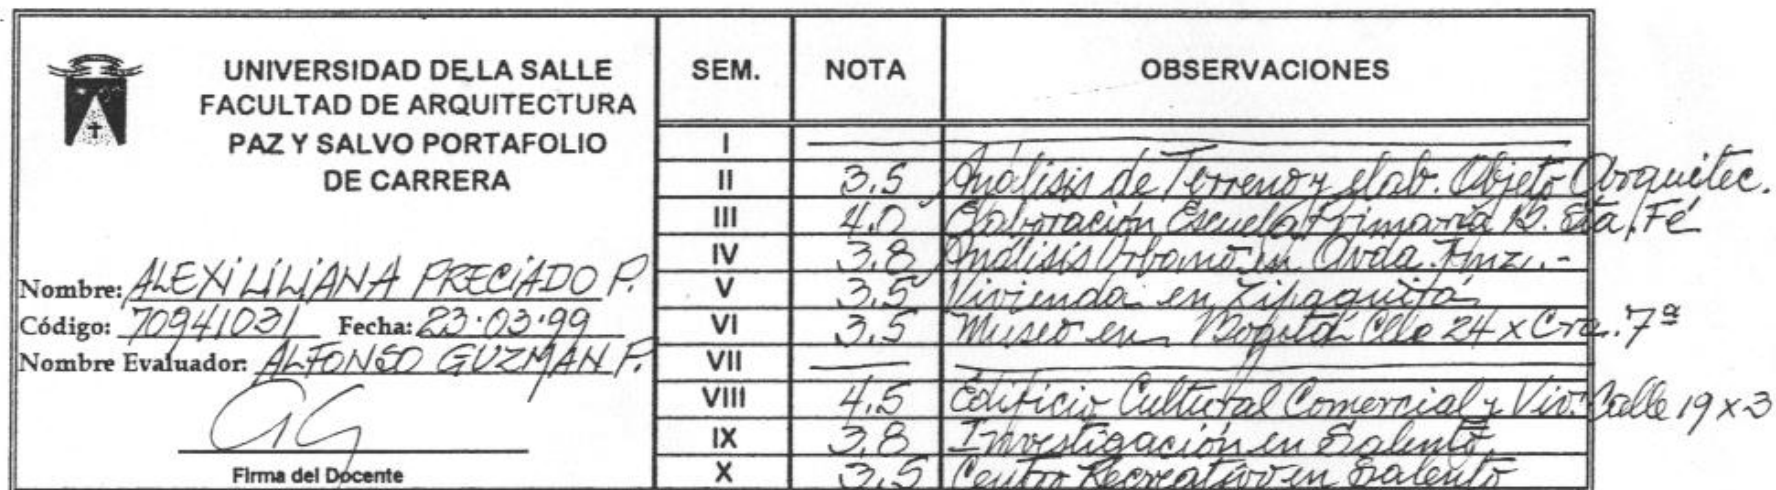 UNIVERSIDAD DE LA SALLE
FACULTAD DE ARQUITECTURA
PAZ Y SALVO PORTAFOLIO
DE CARRERA
Nombre: ALEXI LILIANA PRECIADO P.
Código: 70941031 Fecha: 23·03·99
Nombre Evaluador: ALFONSO GUZMAN F.
Firma del Docente
SEM. NOTA OBSERVACIONES
I
II 3.5 Análisis de Terreno y elab. Objeto Arquitec.
III 4.0 Elaboración Escuela Primaria B. Sta. Fé
IV 3.8 Análisis Urbano en Avda.
V 3.5 Vivienda en Zipaquirá
VI 3.5 Museo en Bogotá Clle 24 x Cra. 7ª
VII
VIII 4.5 Edificio Cultural Comercial y Viv. Calle 19 x 3
IX 3.8 Investigación en Salento
X 3.5 Centro Recreativo en Salento